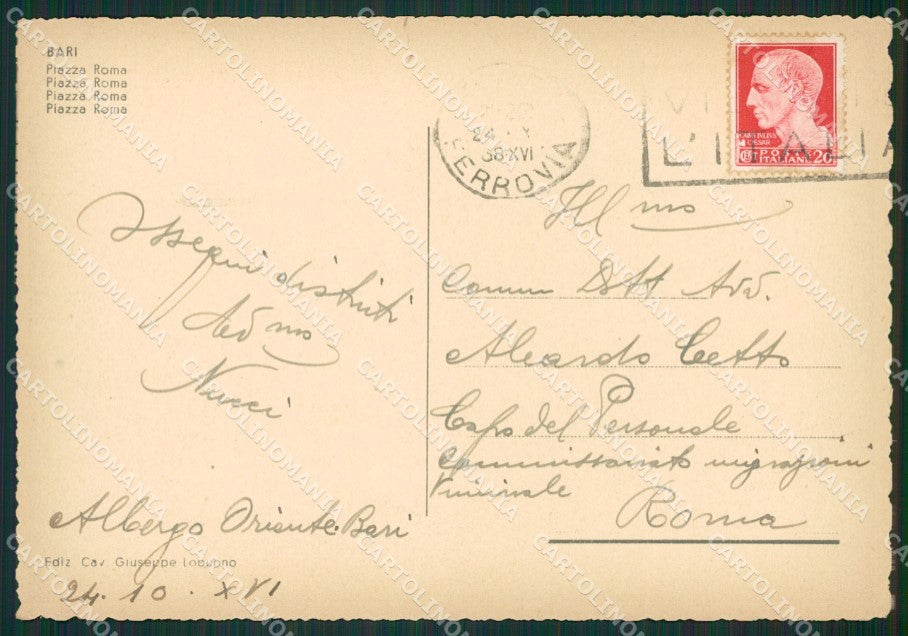 BARI
Piazza Roma
Piazza Roma
Piazza Roma
Piazza Roma
24. X
38·XVI
FERROVIA
L'ITALIA
CAIVS IVLIVS
CAESAR
POSTE
ITALIANE 20
Ossequi distinti
Dev mo
Nucci
Albergo Oriente. Bari
Ediz. Cav. Giuseppe Lobuono
24. 10. XVI
Ill mo
Comm Dott Avv.
Aleardo Cetto
Capo del Personale
Commissariato migrazioni
Viminale
Roma
CARTOLINOMANIA